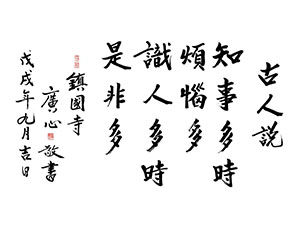 古人説
知事多時
煩惱多
識人多時
是非多
鎮國寺
廣心敬書
戊戌年九月吉日